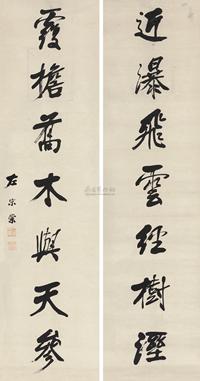 近瀑飛雲經樹溼
覆檐舊木與天參
左宗棠